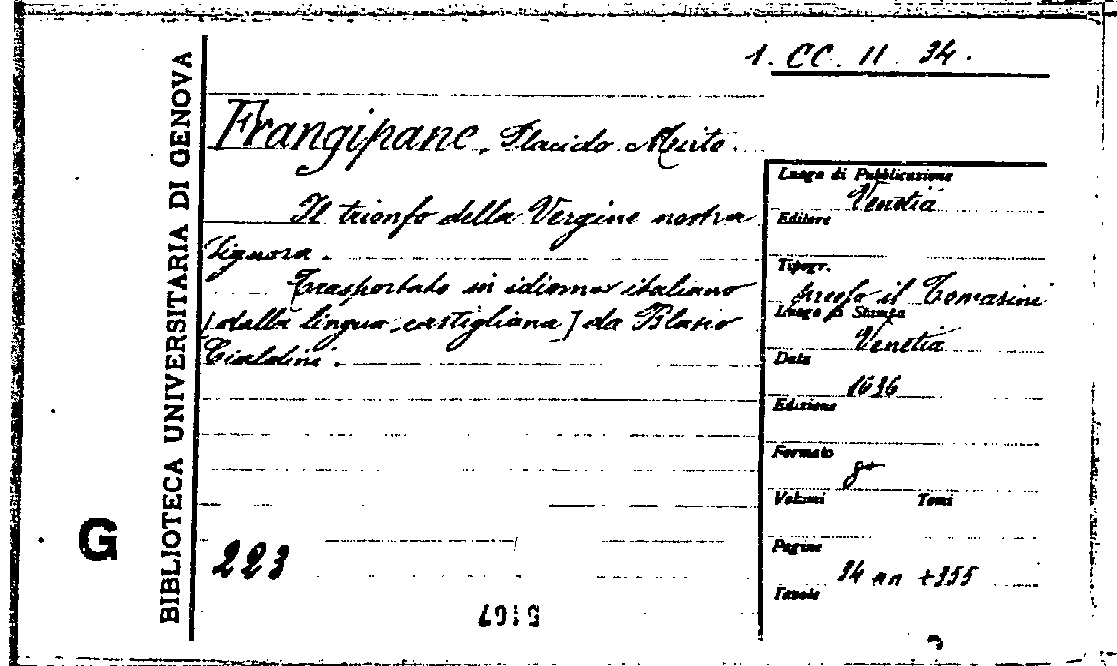 1. CC. II. 34.
BIBLIOTECA UNIVERSITARIA DI GENOVA
G
Frangipane, Placido Mirto.
Il trionfo della Vergine nostra
Signora.
Trasportato in idioma italiano
[dalla lingua castigliana] da Blasio
Cialdini.
223
5167
Luogo di Pubblicazione
Venetia
Editore
Tipogr.
presso il Tomasini
Luogo di Stampa
Venetia
Data
1636
Edizione
Formato
8°
Volumi Tomi
Pagine
34 nn + 355
Tavole